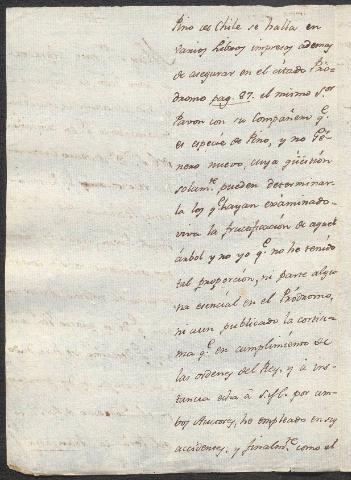 Pino de Chile se halla en
varios Libros impresos ademas
de asegurar en el citado Pró-
dromo pag. 87. el mismo Sor
Pavon con su Compañero q.e
es especie de Pino, y no Gé-
nero nuevo, cuya qüistion
solam.te pueden determinar-
la los q.e hayan exâminado
viva la fructificacion de aquel
árbol y no yo q.e no he tenido
tal proporcion, ni parte algu-
na esencial en el Pródromo,
ni aun publicado la cortisi-
ma q.e en cumplimiento de
las ordenes del Rey, y â ins-
tancia por am-
bos Autores, he empleado en sus
accidentes: y finalm.te como el